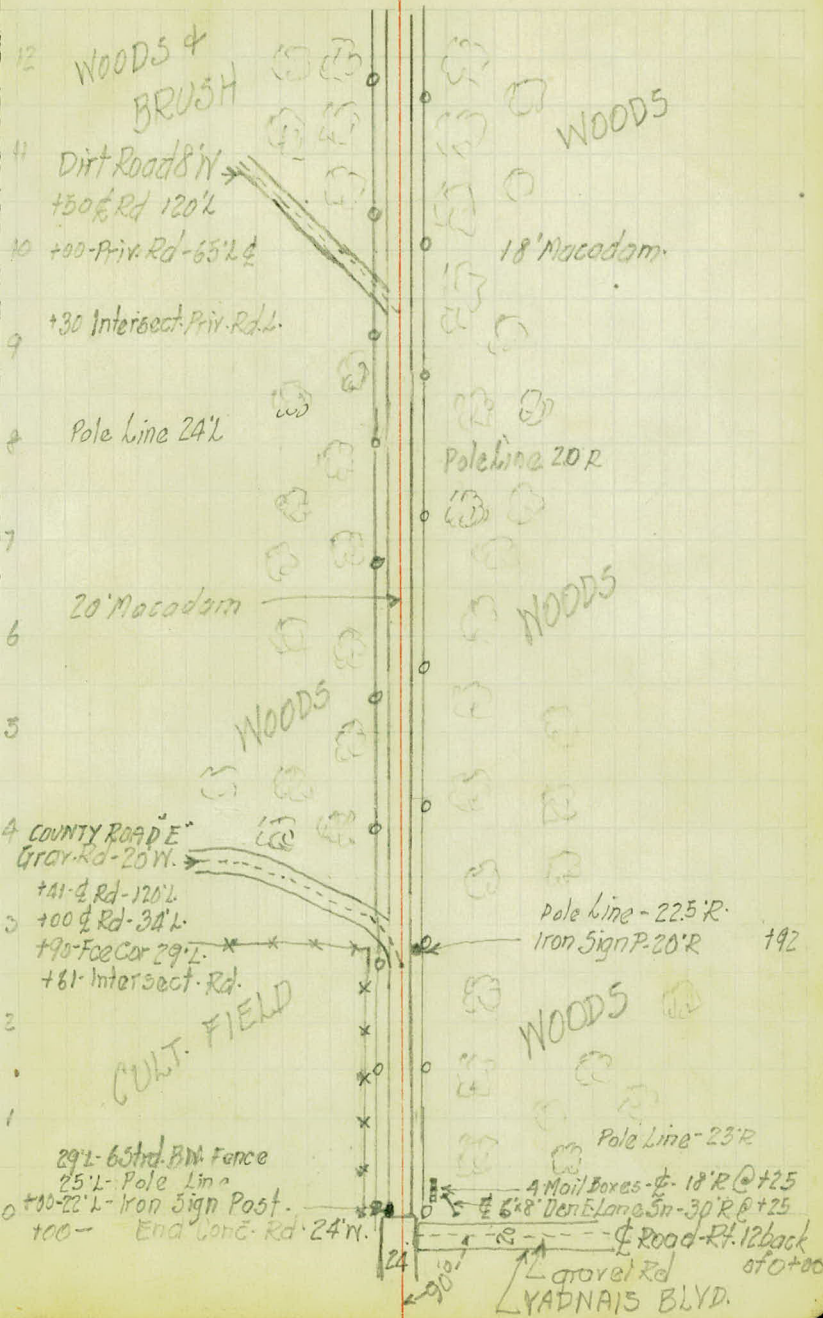 12 WOODS &
BRUSH
WOODS
11 Dirt Road 8'W
+50 ℄ Rd 120'L
10 +00-Priv. Rd-65'L ℄
18' Macadam.
+30 Intersect. Priv. Rd. L.
9
8 Pole Line 24'L
Pole Line 20'R
7
20' Macadam
WOODS
6
WOODS
5
4 COUNTY ROAD "E"
Grav. Rd-20'W.
+41-℄ Rd-120'L
3 +00 ℄ Rd-34'L.
Pole Line - 22.5'R.
+90-Fce Cor 29'L.
Iron Sign P.-20'R +92
+81-Intersect. Rd.
2
CULT. FIELD
WOODS
1
Pole Line-23'R
29'L-6 Strd. B.W. Fence
25'L-Pole Line
4 Mail Boxes-℄-18'R @ +25
0 +00-22'L-Iron Sign Post.
℄ 6'x8' Lane Sn-30'R @ +25
+00- End Conc. Rd. 24'W.
℄ Road-Rt. 12 back
of 0+00
24
90°
gravel Rd
VADNAIS BLVD.